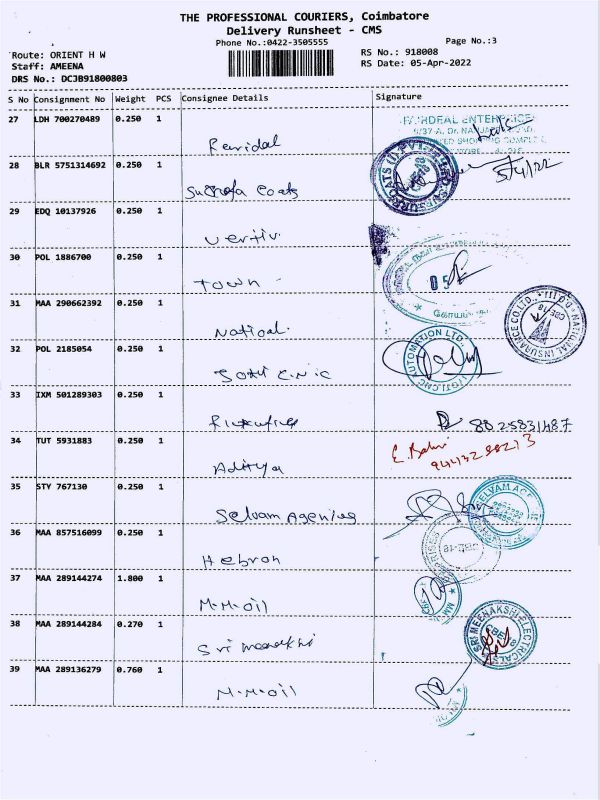 THE PROFESSIONAL COURIERS, Coimbatore
Delivery Runsheet - CMS
Phone No.:0422-3505555
Page No.:3
Route: ORIENT H W
RS No.: 918008
Staff: AMEENA
RS Date: 05-Apr-2022
DRS No.: DCJB91800803
S No Consignment No Weight PCS Consignee Details Signature
27 LDH 700270489 0.250 1
28 BLR 5751314692 0.250 1 Coats 5/4/22
29 EDQ 10137926 0.250 1 Vertiv
30 POL 1886700 0.250 1 Town
05
கோயம்
31 MAA 290662392 0.250 1 National
NATIONAL INSURANCE CO.LTD.
32 POL 2185054 0.250 1
JYOTI CNC AUTOMATION LTD.
33 IXM 501289303 0.250 1 8825831487
34 TUT 5931883 0.250 1 Aditya
9443298213
35 STY 767130 0.250 1 Selvam Agencies
SELVAM AGE
36 MAA 857516099 0.250 1 Hebron
CBE-18
37 MAA 289144274 1.800 1 M.M.oil
38 MAA 289144284 0.270 1 Sri meenakshi
SRI MEENAKSHI ELECTRICALS
39 MAA 289136279 0.760 1 M.M.oil